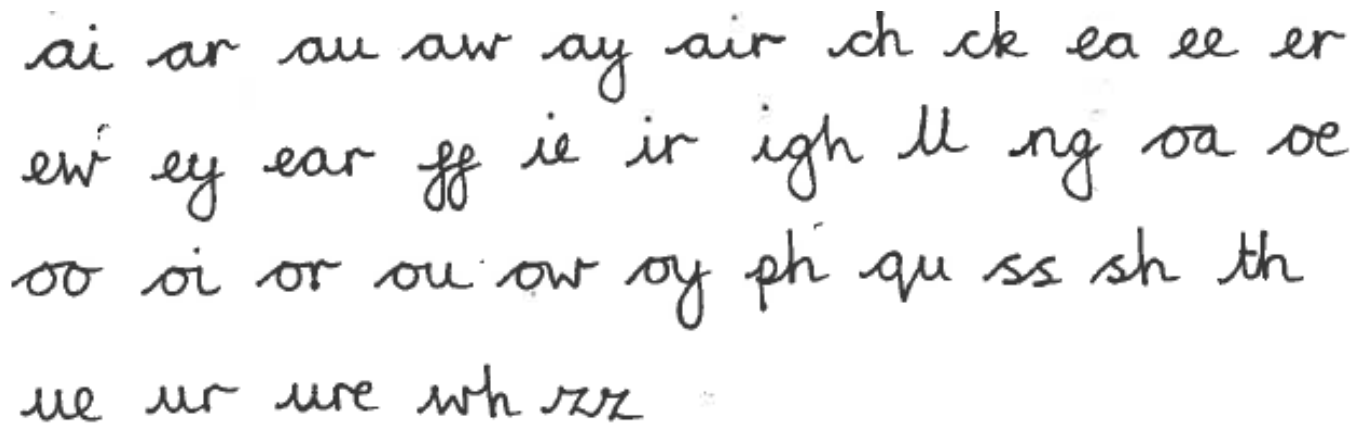 ai ar au aw ay air ch ck ea ee er
ew ey ear ff ie ir igh ll ng oa oe
oo oi or ou ow oy ph qu ss sh th
ue ur ure wh zz